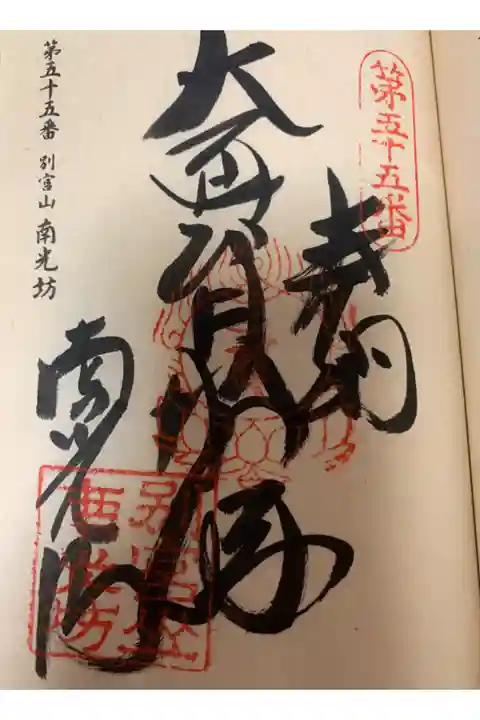 第五十五番
奉納
大
南光坊
別宮山
南光坊
第五十五番 別宮山 南光坊